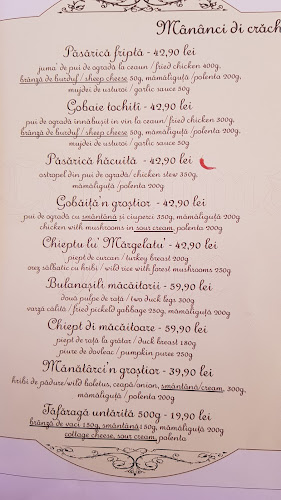 Mănânci di crăc
Păsărică friptă - 42,90 lei
juma' de pui de ogradă la ceaun / fried chicken 400g,
brânză de burduf / sheep cheese 50g, mămăliguță/polenta 200g,
mujdei de usturoi / garlic sauce 50g
Gobaie tochiti - 42,90 lei
pui de ogradă înnăbușit în vin la ceaun/ fried chicken 300g,
brânză de burduf / sheep cheese 50g, mămăliguță / polenta 200g,
mujdei de usturoi / garlic sauce 50g
Păsărică hăcuită - 42,90 lei
ostropel din pui de ogradă/ chicken stew 350g,
mămăliguță/polenta 200g
Gobăiț'n groștior - 42,90 lei
pui de ogradă cu smântână si ciuperci 350g, mămăliguță 200g
chicken with mushrooms in sour cream, polenta 200g
Chieptu lu' Mărgelatu' - 42,90 lei
piept de curcan / turkey breast 200g
orez sălbatic cu hribi / wild rice with forest mushrooms 250g
Bulanașili măcăitorii - 59,90 lei
două pulpe de rață / two duck legs 300g
varză călită / fried pickeld gabbage 250g, mămăliguță 200g
Chiept di măcăitoare - 59,90 lei
piept de rață la grătar / duck breast 180g
piure de dovleac / pumpkin puree 250g
Mânătărci'n groștior - 39,90 lei
hribi de pădure/wild boletus, ceapă/onion, smântână/cream, 300g,
mămăliguță / polenta 200g
Tăfăragă untărită 500g - 19,90 lei
brânză de vaci 150g, smântână 150g, mămăliguță 200g
cottage cheese, sour cream, polenta